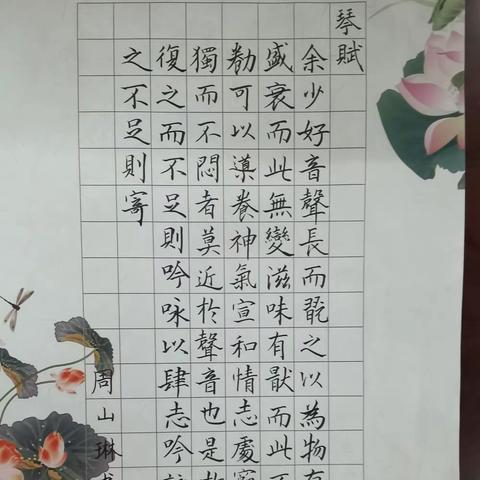 琴賦
余少好音聲長而翫之以為物有
盛衰而此無變滋味有猒而此不
勌可以導養神氣宣和情志處窮
獨而不悶者莫近於聲音也是故
復之而不足則吟咏以肆志吟
之不足則寄
周山琳